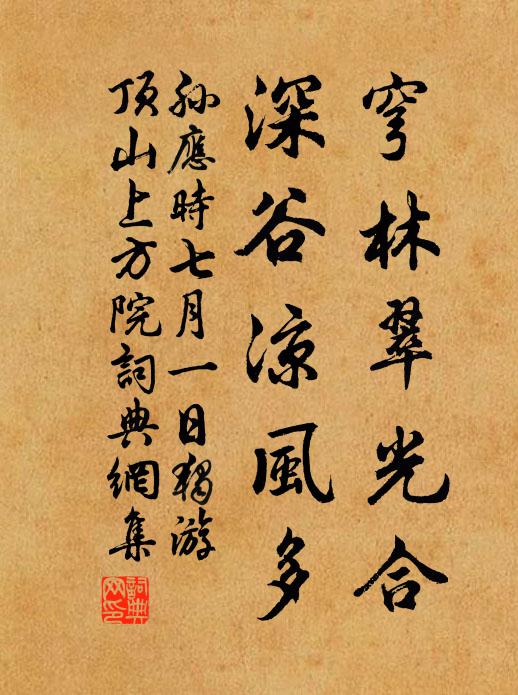 穹林翠光合
深谷涼風多
孫應時七月一日獨游
頂山上方院詞典網集
詞典網印